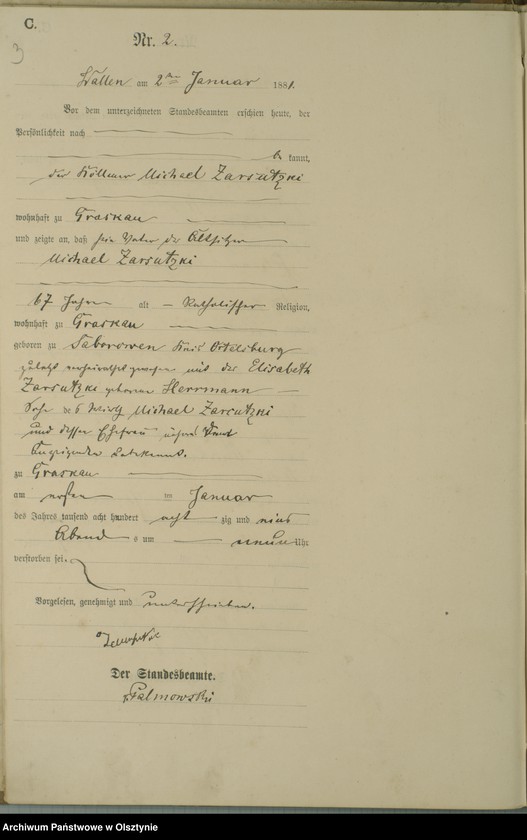 C.
3
Nr. 2.
Wallen am 2ten Januar 1881.
Vor dem unterzeichneten Standesbeamten erschien heute, der
Persönlichkeit nach
be kannt,
der Köllmer Michael Zarsutzki
wohnhaft zu Graskau
und zeigte an, daß sein Vater der Altsitzer
Michael Zarsutzki
67 Jahre alt katholischer Religion,
wohnhaft zu Graskau
geboren zu Saborowen Kreis Ortelsburg
zuletzt verheirathet gewesen mit der Elisabeth
Zarsutzki geborene Herrmann
Sohn des Michael Zarsutzki
und dessen Ehefrau
zu Graskau
am ersten ten Januar
des Jahres tausend acht hundert acht zig und eins
Abend s um neun Uhr
verstorben sei.
Vorgelesen, genehmigt und unterschrieben.
Der Standesbeamte.
Palmowski
Archiwum Państwowe w Olsztynie